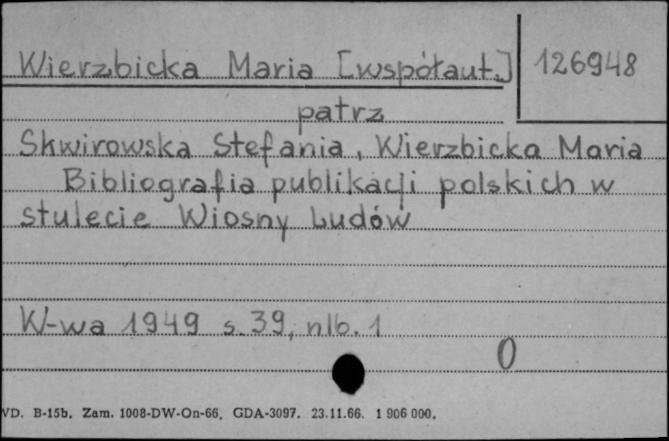 Wierzbicka Maria [współaut.] 126948
patrz
Skwirowska Stefania, Wierzbicka Maria
Bibliografia publikacji polskich w
stulecie Wiosny Ludów
W-wa 1949 s. 39, nlb. 1
0
VD. B-15b. Zam. 1008-DW-On-66. GDA-3097. 23.11.66. 1 906 000.